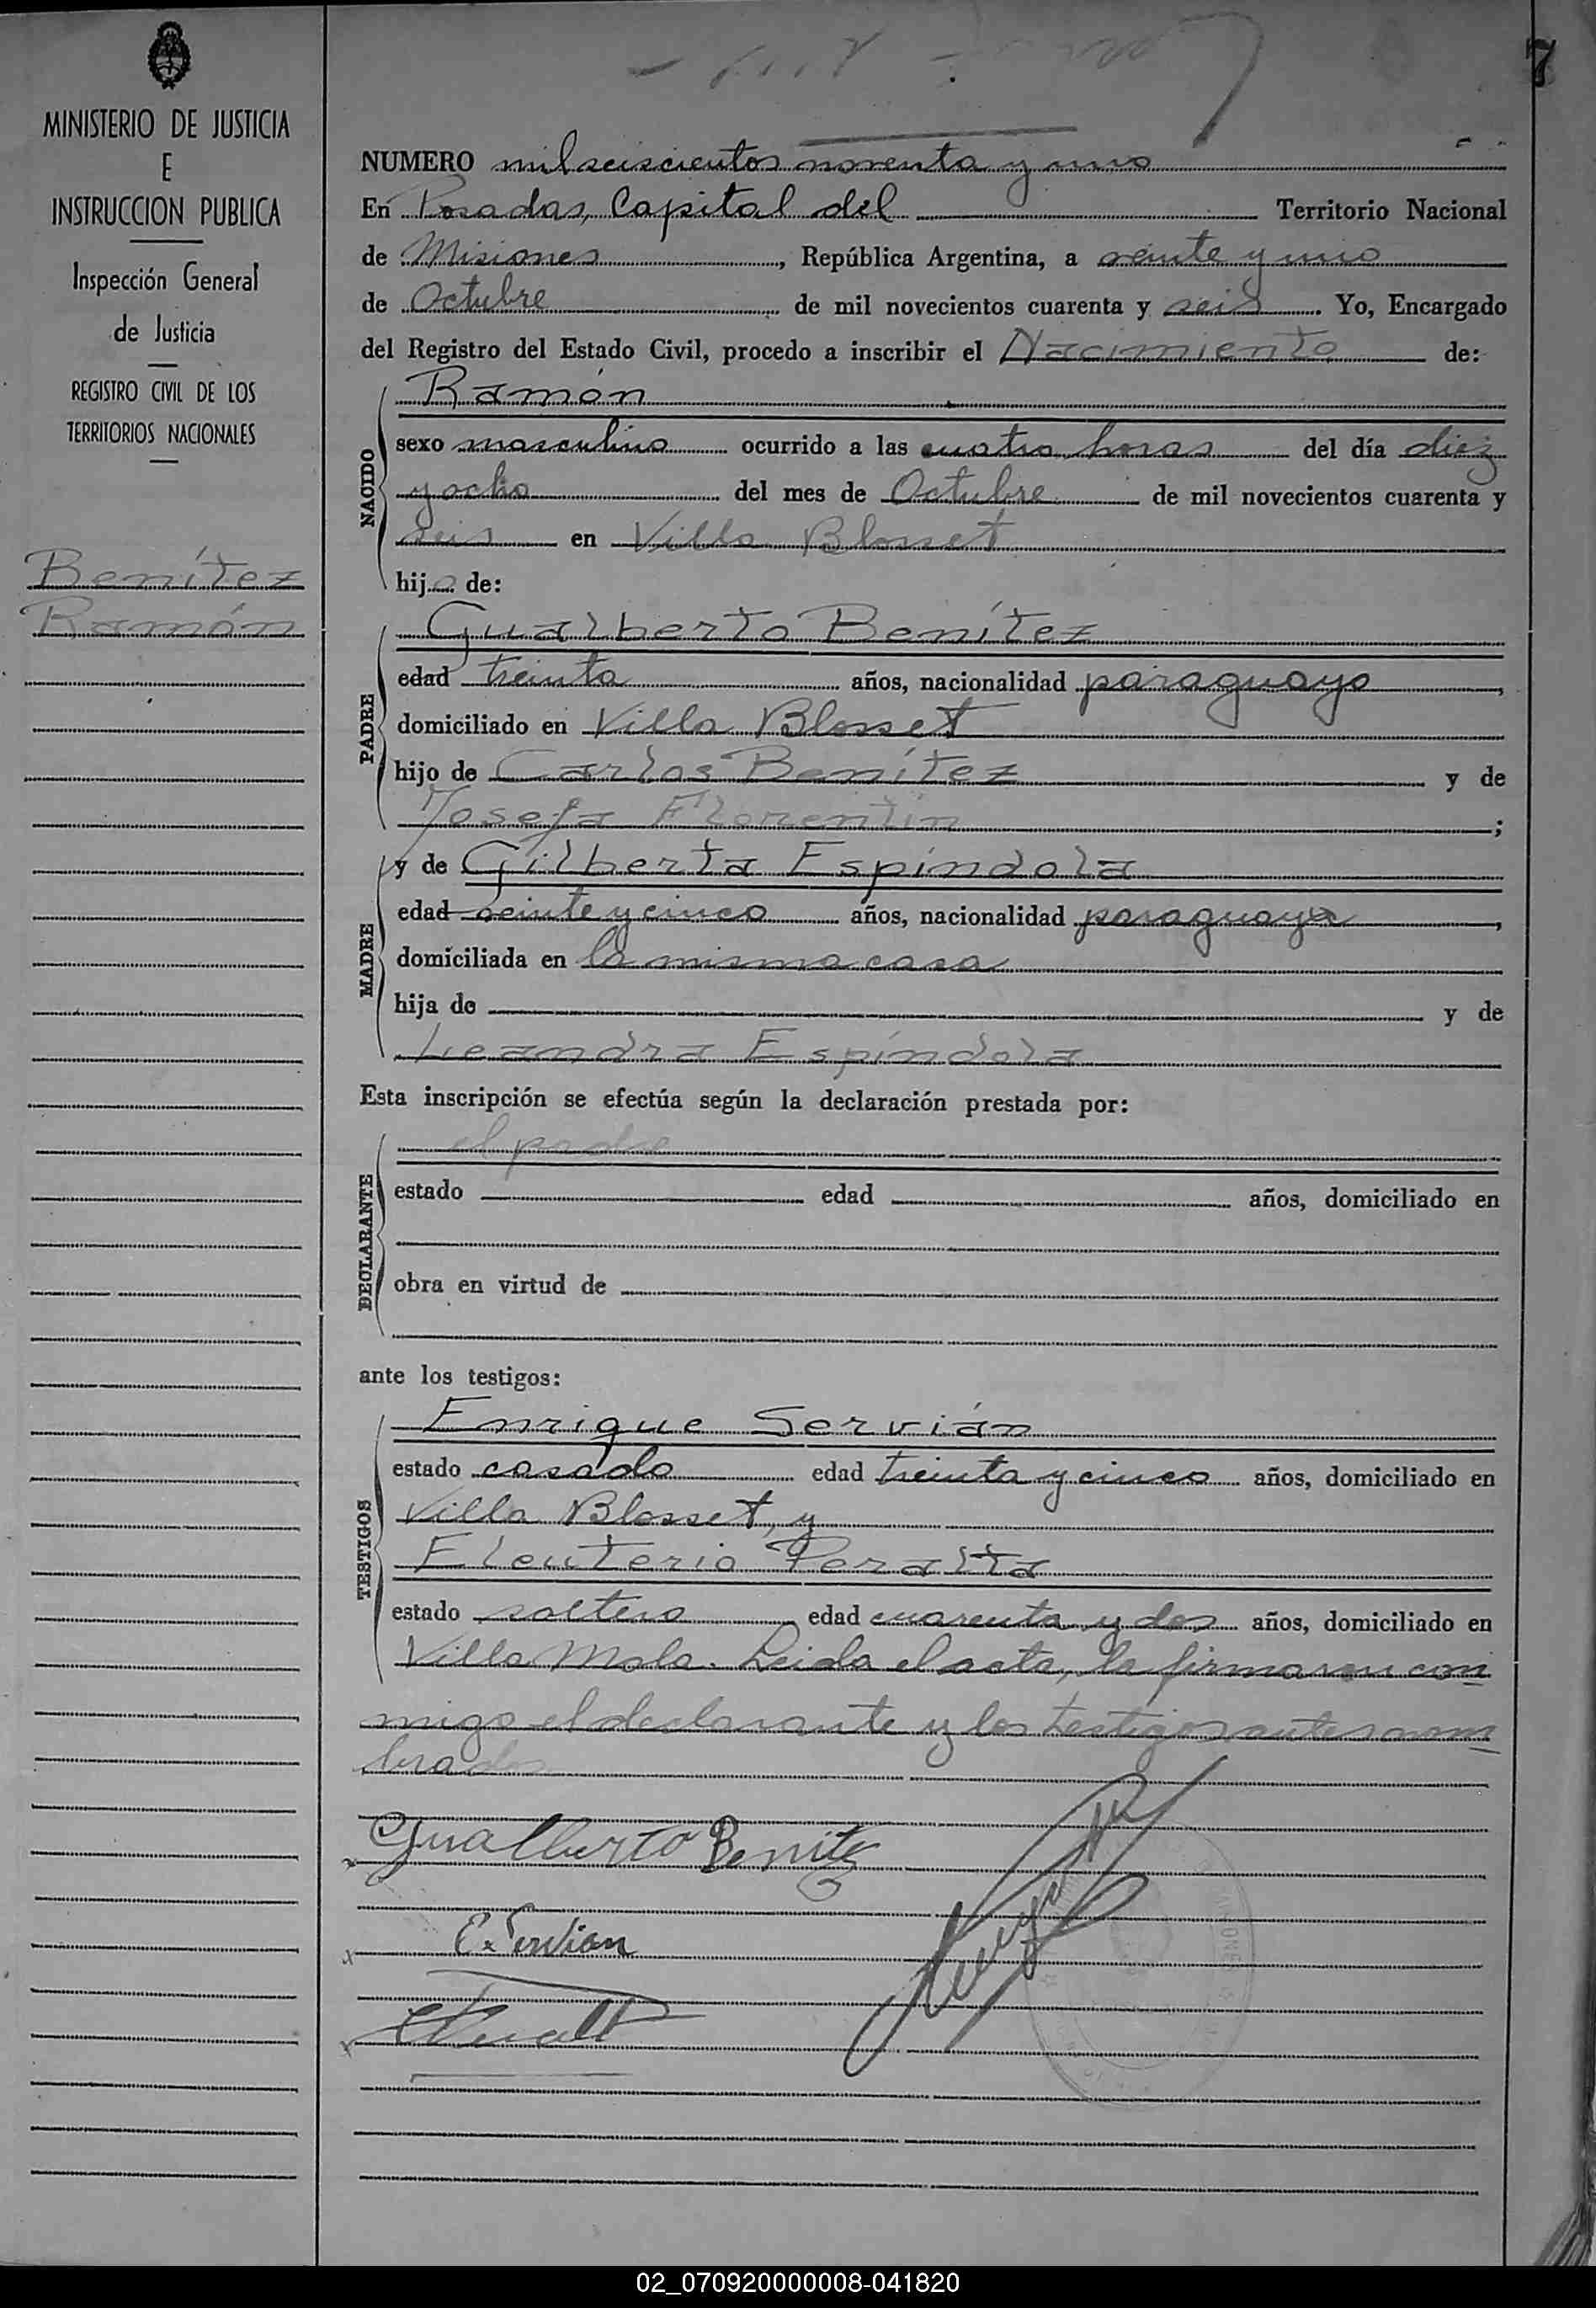 7
MINISTERIO DE JUSTICIA
E
INSTRUCCION PUBLICA
Inspección General
de Justicia
REGISTRO CIVIL DE LOS
TERRITORIOS NACIONALES
Benítez
Ramón
NUMERO mil seiscientos noventa y uno
En Posadas, Capital del Territorio Nacional
de Misiones, República Argentina, a veinte y uno
de Octubre de mil novecientos cuarenta y seis. Yo, Encargado
del Registro del Estado Civil, procedo a inscribir el Nacimiento de:
NACIDO
Ramón
sexo masculino ocurrido a las cuatro horas del día diez
y ocho del mes de Octubre de mil novecientos cuarenta y
seis en Villa Blosset
hijo de:
PADRE
Gualberto Benítez
edad treinta años, nacionalidad paraguayo,
domiciliado en Villa Blosset
hijo de Carlos Benítez y de
Josefa Florentin;
MADRE
y de Gilberta Espíndola
edad veinte y cinco años, nacionalidad paraguaya,
domiciliada en la misma casa
hija de y de
Leandra Espíndola
Esta inscripción se efectúa según la declaración prestada por:
DECLARANTE
el padre
estado edad años, domiciliado en
obra en virtud de
ante los testigos:
TESTIGOS
Enrique Servián
estado casado edad treinta y cinco años, domiciliado en
Villa Blosset, y
Eleuterio Peralta
estado soltero edad cuarenta y dos años, domiciliado en
Villa Mola. Leida el acta, la firmaron con
migo el declarante y los testigos antes nom
brados
Gualberto Benitez
E. Servian
02_070920000008-041820